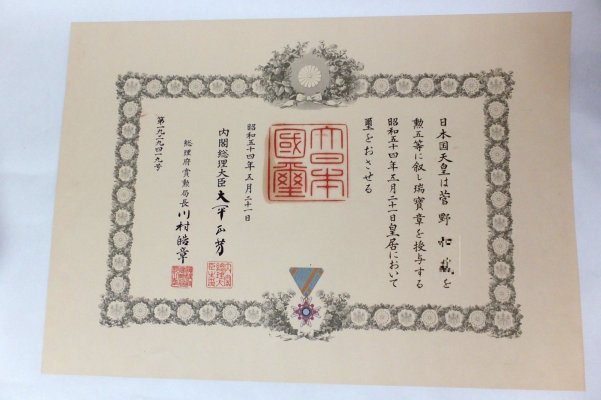 日本国天皇は菅野を
勲五等に叙し瑞寶章を授与する
昭和五十四年五月二十一日皇居において
璽をおさせる
大日本國璽
昭和五十四年五月二十一日
内閣総理大臣 大平正芳
総理府賞勲局長 川村皓章